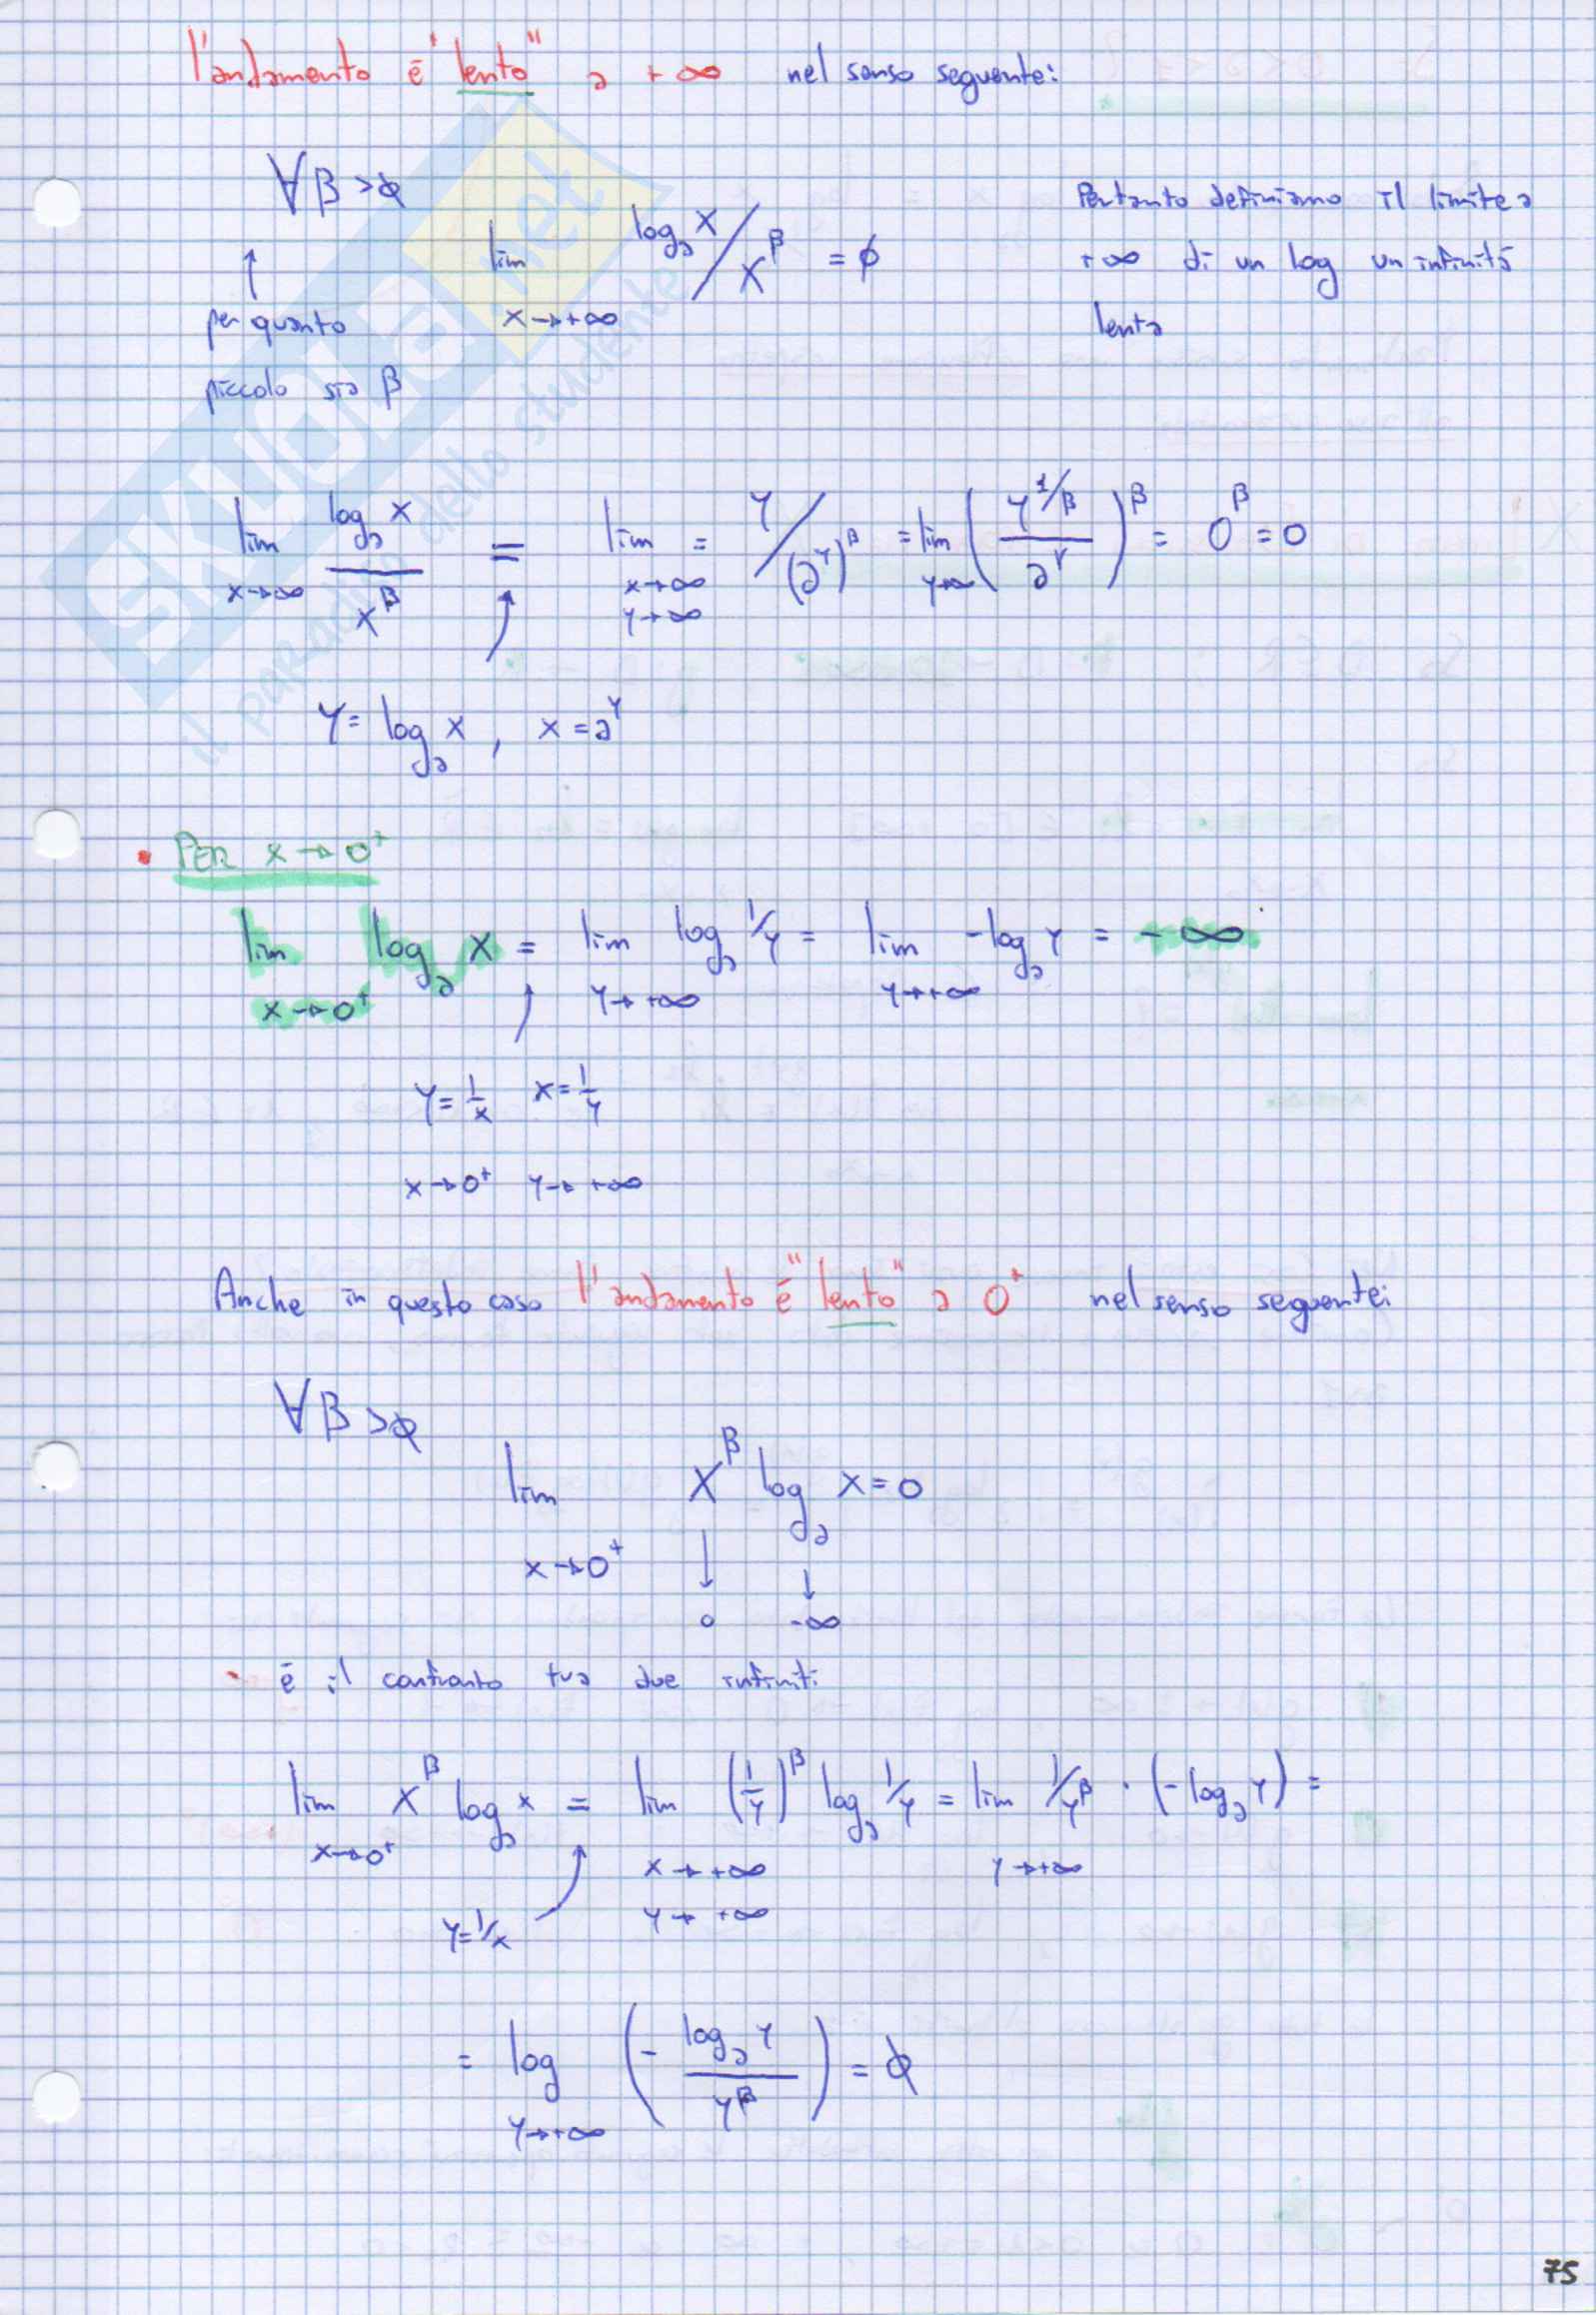 l'andamento è "lento" a +∞ nel senso seguente:
∀β>ϕ
lim x→+∞ log_a x / x^β = ϕ
↑
per quanto
piccolo sia β
Pertanto definiamo il limite a
+∞ di un log un infinità
lenta
lim x→∞ log_a x / x^β = lim x→∞ y→∞ = y/(a^y)^β = lim y→∞ (y^{1/β} / a^y)^β = 0^β = 0
y = log_a x , x = a^y
• PER x→0⁺
lim x→0⁺ log_a x = lim y→+∞ log_a 1/y = lim y→+∞ -log_a y = -∞
y = 1/x x = 1/y
x→0⁺ y→+∞
Anche in questo caso l'andamento è "lento" a 0⁺ nel senso seguente:
∀β>ϕ
lim x→0⁺ x^β log_a x = 0
↓ ↓
0 -∞
• è il confronto tra due infiniti
lim x→0⁺ x^β log_a x = lim x→+∞ y→+∞ (1/y)^β log_a 1/y = lim y→+∞ 1/y^β · (-log_a y) =
y = 1/x
= log y→+∞ (- log_a y / y^β) = ϕ
75
SKUOLA.net
il paradiso dello studente